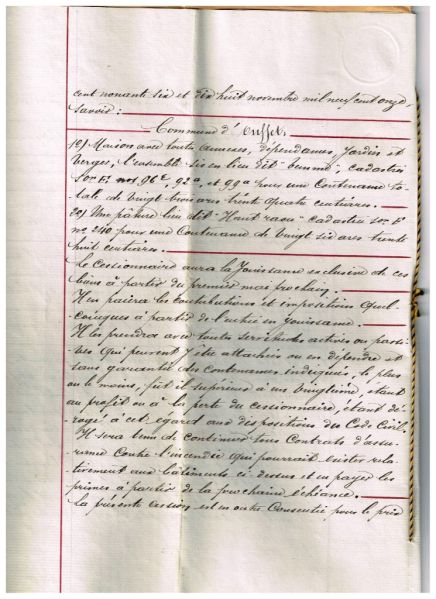 cent nonante six et dix huit novembre mil neuf cent onze,
savoir:
Commune d'Ouffet.
1o) Maison avec toutes annexes, dépendances, Jardin et
Verger, l'ensemble sis en lieu dit " " cadastrés
Son E nos 96c, 92a, et 99a pour une Contenance to-
tale de vingt trois ares trente quatre centiares.
2o) Une pâture lieu dit "Haut " cadastrée son E
no 240 pour une Contenance de vingt six ares trente
huit centiares.
Le cessionnaire aura la Jouissance exclusive de ces
biens à partir du premier mai prochain.
Il en paiera les Contributions et impositions quel-
conques à partir de l'entrée en jouissance.
Il les prendra avec toutes servitudes actives ou passi-
ves qui peuvent y être attachées ou en dépendre et
sans garantie des Contenances indiquées, le plus
ou le moins, fût il supérieur à un vingtième, étant
au profit ou à la perte du cessionnaire, étant dé-
rogé à cet égard aux dispositions du Code Civil.
Il sera tenu de continuer tous Contrats d'assu-
rance Contre l'incendie qui pourrait exister rela-
tivement aux bâtiments ci dessus et en payer les
primes à partir de la prochaine échéance.
La présente cession est en outre Consentie pour le prix